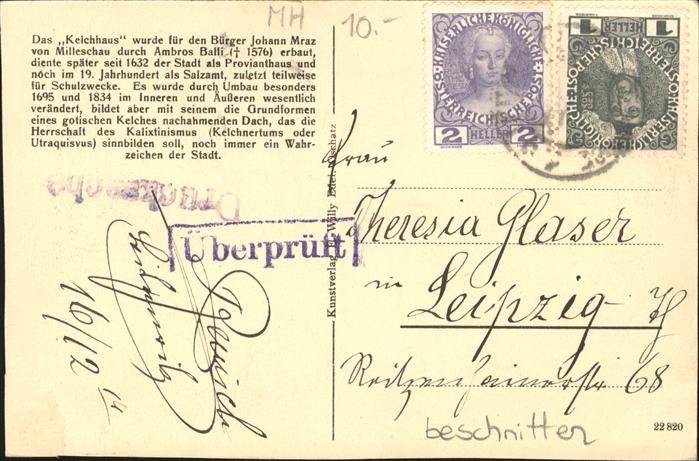 MH
10.-
Das „Kelchhaus" wurde für den Bürger Johann Mraz
von Milleschau durch Ambros Balli († 1576) erbaut,
diente später seit 1632 der Stadt als Provianthaus und
noch im 19. Jahrhundert als Salzamt, zuletzt teilweise
für Schulzwecke. Es wurde durch Umbau besonders
1695 und 1834 im Inneren und Äußeren wesentlich
verändert, bildet aber mit seinem die Grundformen
eines gotischen Kelches nachahmenden Dach, das die
Herrschaft des Kalixtinismus (Kelchnertums oder
Utraquisvus) sinnbilden soll, noch immer ein Wahr-
zeichen der Stadt.
KAISERLICHE KÖNIGLICHE
ÖSTERREICHISCHE POST
2 HELLER 2
1 HELLER 1
KAISERLICHE KÖNIGLICHE
ÖSTERREICHISCHE POST
Drucksache
Überprüft
16/12 14
Kunstverlag F. Willy
Frau
Theresia Glaser
in
Leipzig
Reitzenhainerstr 68
beschnitten
22820